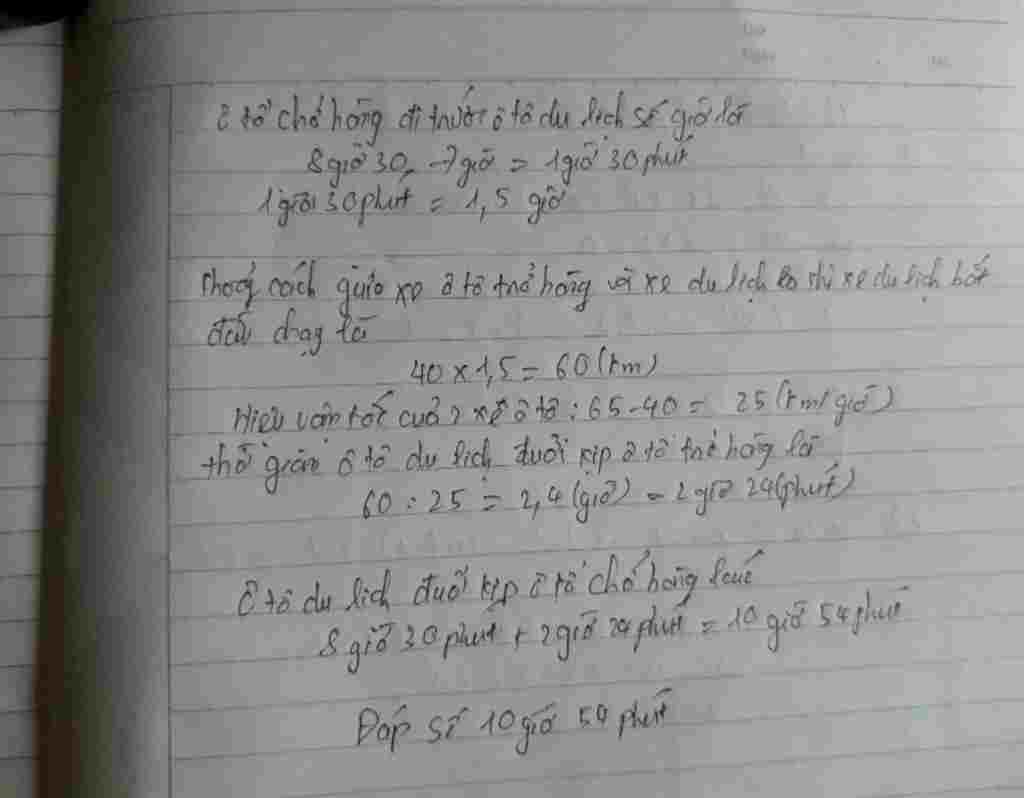 ô tô chở hàng đi trước ô tô du lịch số giờ là
8 giờ 30 - 7 giờ = 1 giờ 30 phút
1 giờ 30 phút = 1,5 giờ
cách giữa xe ô tô trở hàng và xe du lịch khi xe du lịch bắt
đầu chạy là
40 x 1,5 = 60 (km)
Hiệu vận tốc của 2 xe ô tô : 65 - 40 = 25 (km/giờ)
thời gian ô tô du lịch đuổi kịp ô tô trở hàng là
60 : 25 = 2,4 (giờ) = 2 giờ 24 (phút)
Ô tô du lịch đuổi kịp ô tô chở hàng lúc
8 giờ 30 phút + 2 giờ 24 phút = 10 giờ 54 phút
Đáp số 10 giờ 54 phút